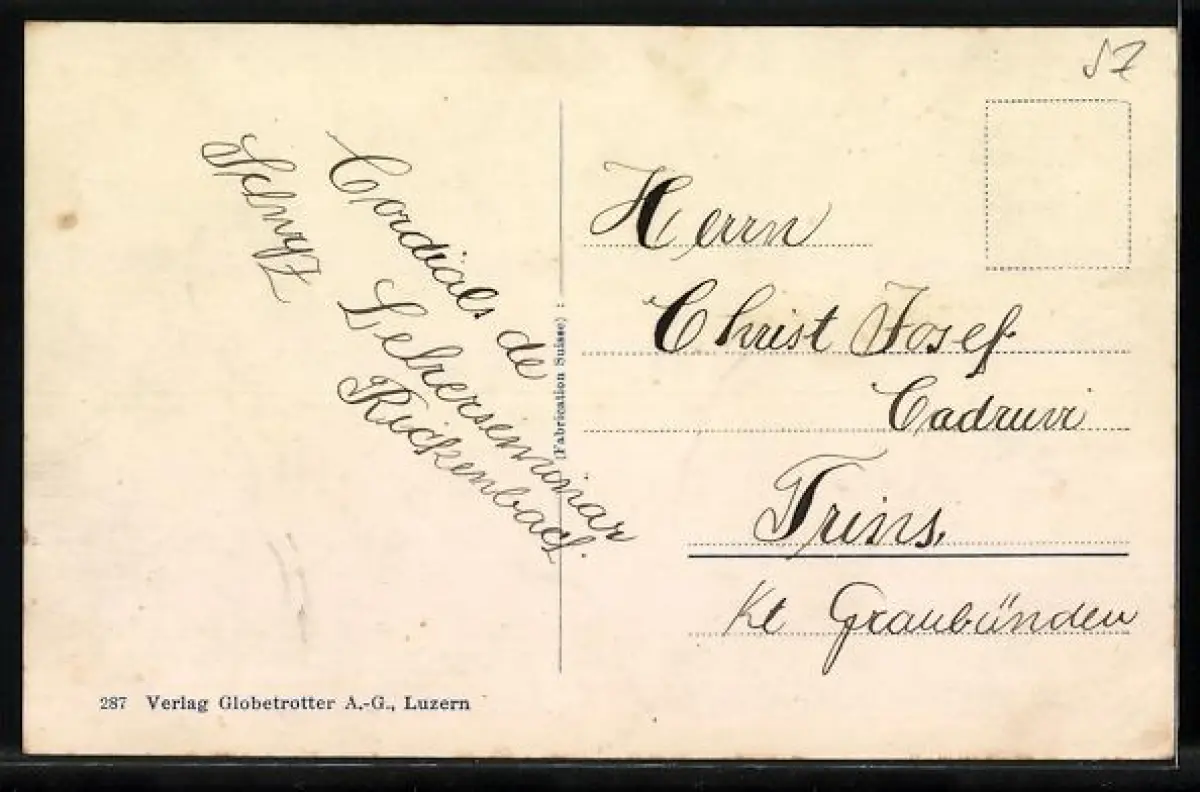 SZ
Schwyz
Cordial. de
Lehrerseminar
Rickenbach.
(Fabrication Suisse) :
Herrn
Christ Josef
Cadruvi
Trins,
Kt Graubünden
287 Verlag Globetrotter A.-G., Luzern